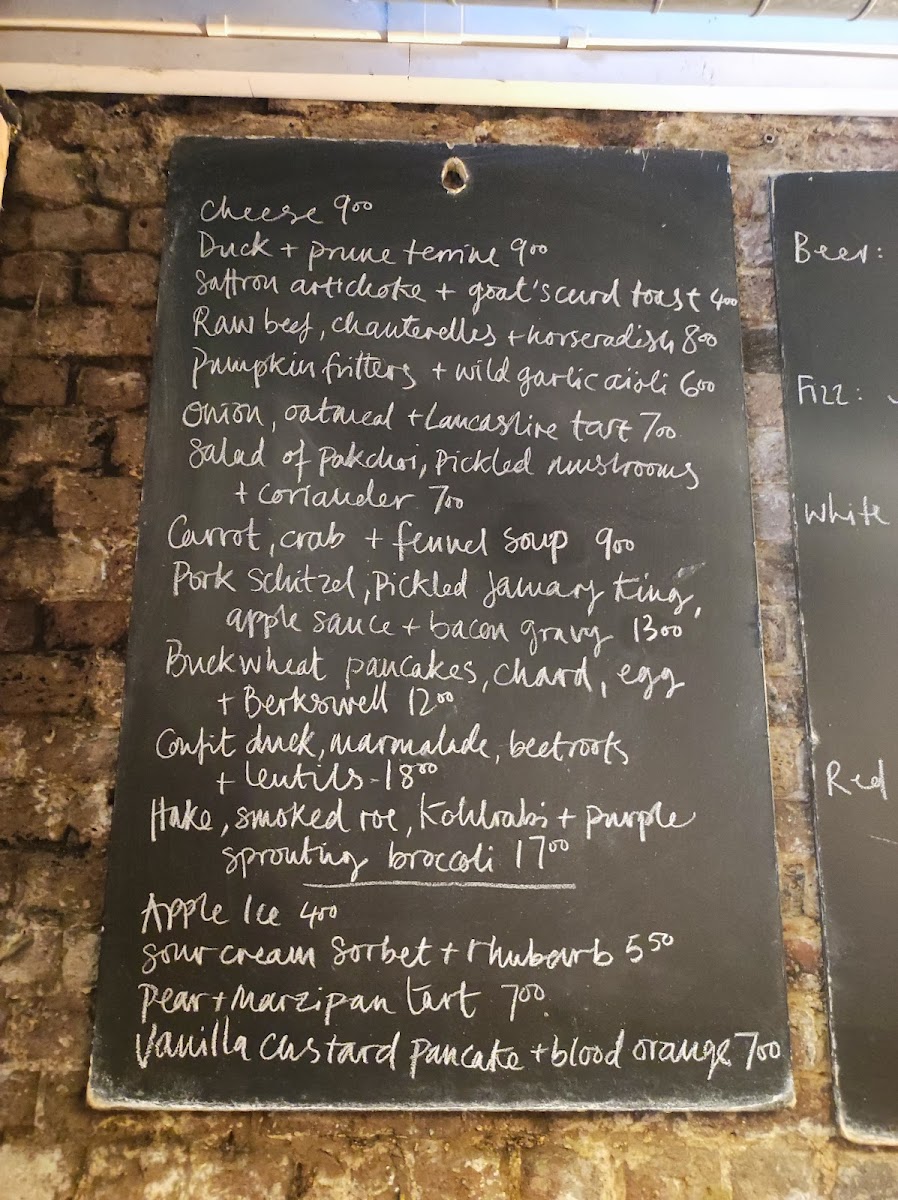 Cheese 9⁰⁰
Duck + prune terrine 9⁰⁰
Saffron artichoke + goat's curd toast 4⁰⁰
Raw beef, chanterelles + horseradish 8⁰⁰
Pumpkin fritters + wild garlic aïoli 6⁰⁰
Onion, oatmeal + Lancashire tart 7⁰⁰
Salad of pakchoi, pickled mushrooms
+ coriander 7⁰⁰
Carrot, crab + fennel soup 9⁰⁰
Pork schitzel, pickled January King,
apple sauce + bacon gravy 13⁰⁰
Buckwheat pancakes, chard, egg
+ Berkswell 12⁰⁰
Confit duck, marmalade, beetroots
+ lentils - 18⁰⁰
Hake, smoked roe, Kohlrabi + purple
sprouting broccoli 17⁰⁰
Apple Ice 4⁰⁰
Sour cream Sorbet + rhubarb 5⁵⁰
Pear + Marzipan tart 7⁰⁰
Vanilla custard pancake + blood orange 7⁰⁰
Beer:
Fizz:
White
Red